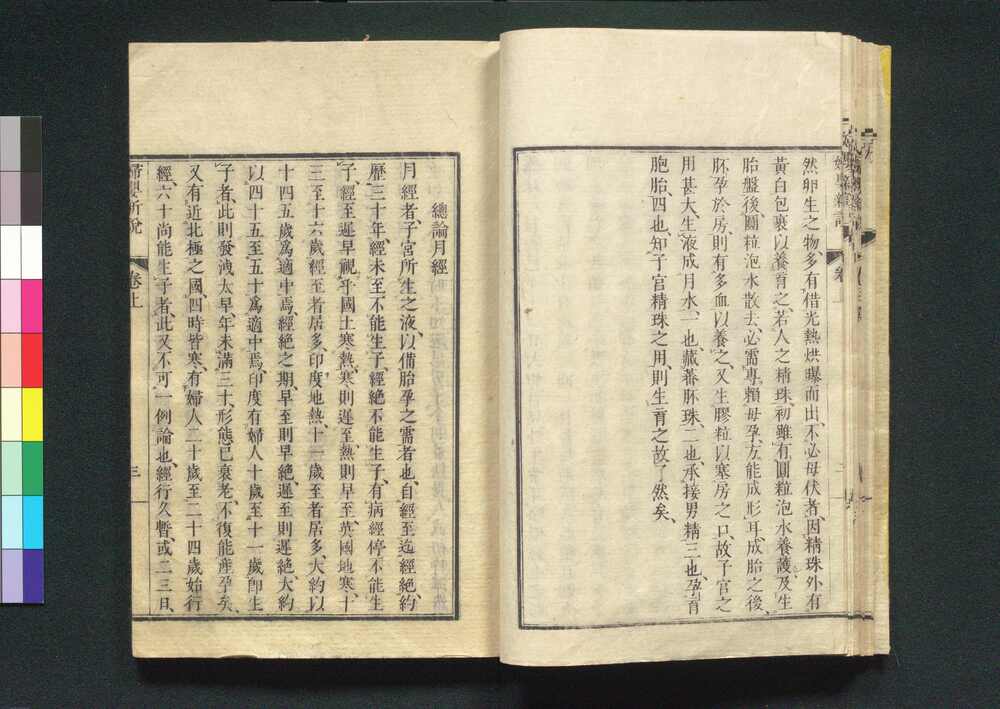 然卵生之物、多有借光熱烘曝而出、不必母伏者、因精珠外有
黃白包裹以養育之、若人之精珠、初雖有圓粒泡水養護、及生
胎盤後、圓粒泡水散去、必需專賴母孕、方能成形耳、成胎之後、
胚孕於房、則有多血以養之、又生膠粒以塞房之口、故子宮之
用甚大、生液成月水、一也、藏蓄胚珠、二也、承接男精、三也、孕育
胞胎、四也、知子宮精珠之用、則生育之故了然矣、
總論月經
月經者、子宮所生之液、以備胎孕之需者也、自經至迄經絕、約
歷三十年、經未至不能生子、經絕不能生子、有病經停不能生
子、經至遲早、視乎國土寒熱、寒則遲至、熱則早至、英國地寒、十
三至十六歲經至者居多、印度地熱、十一歲至者居多、大約以
十四五歲爲適中焉、經絕之期、早至則早絕、遲至則遲絕、大約
以四十五至五十爲適中焉、印度有婦人十歲至十一歲卽生
子者、此則發洩太早、年未滿三十、形態已衰老、不復能產孕矣、
又有近北極之國、四時皆寒、有婦人二十歲至二十四歲始行
經、六十尚能生子者、此又不可一例論也、經行久暫、或二三日、
婦嬰新說 卷上 三